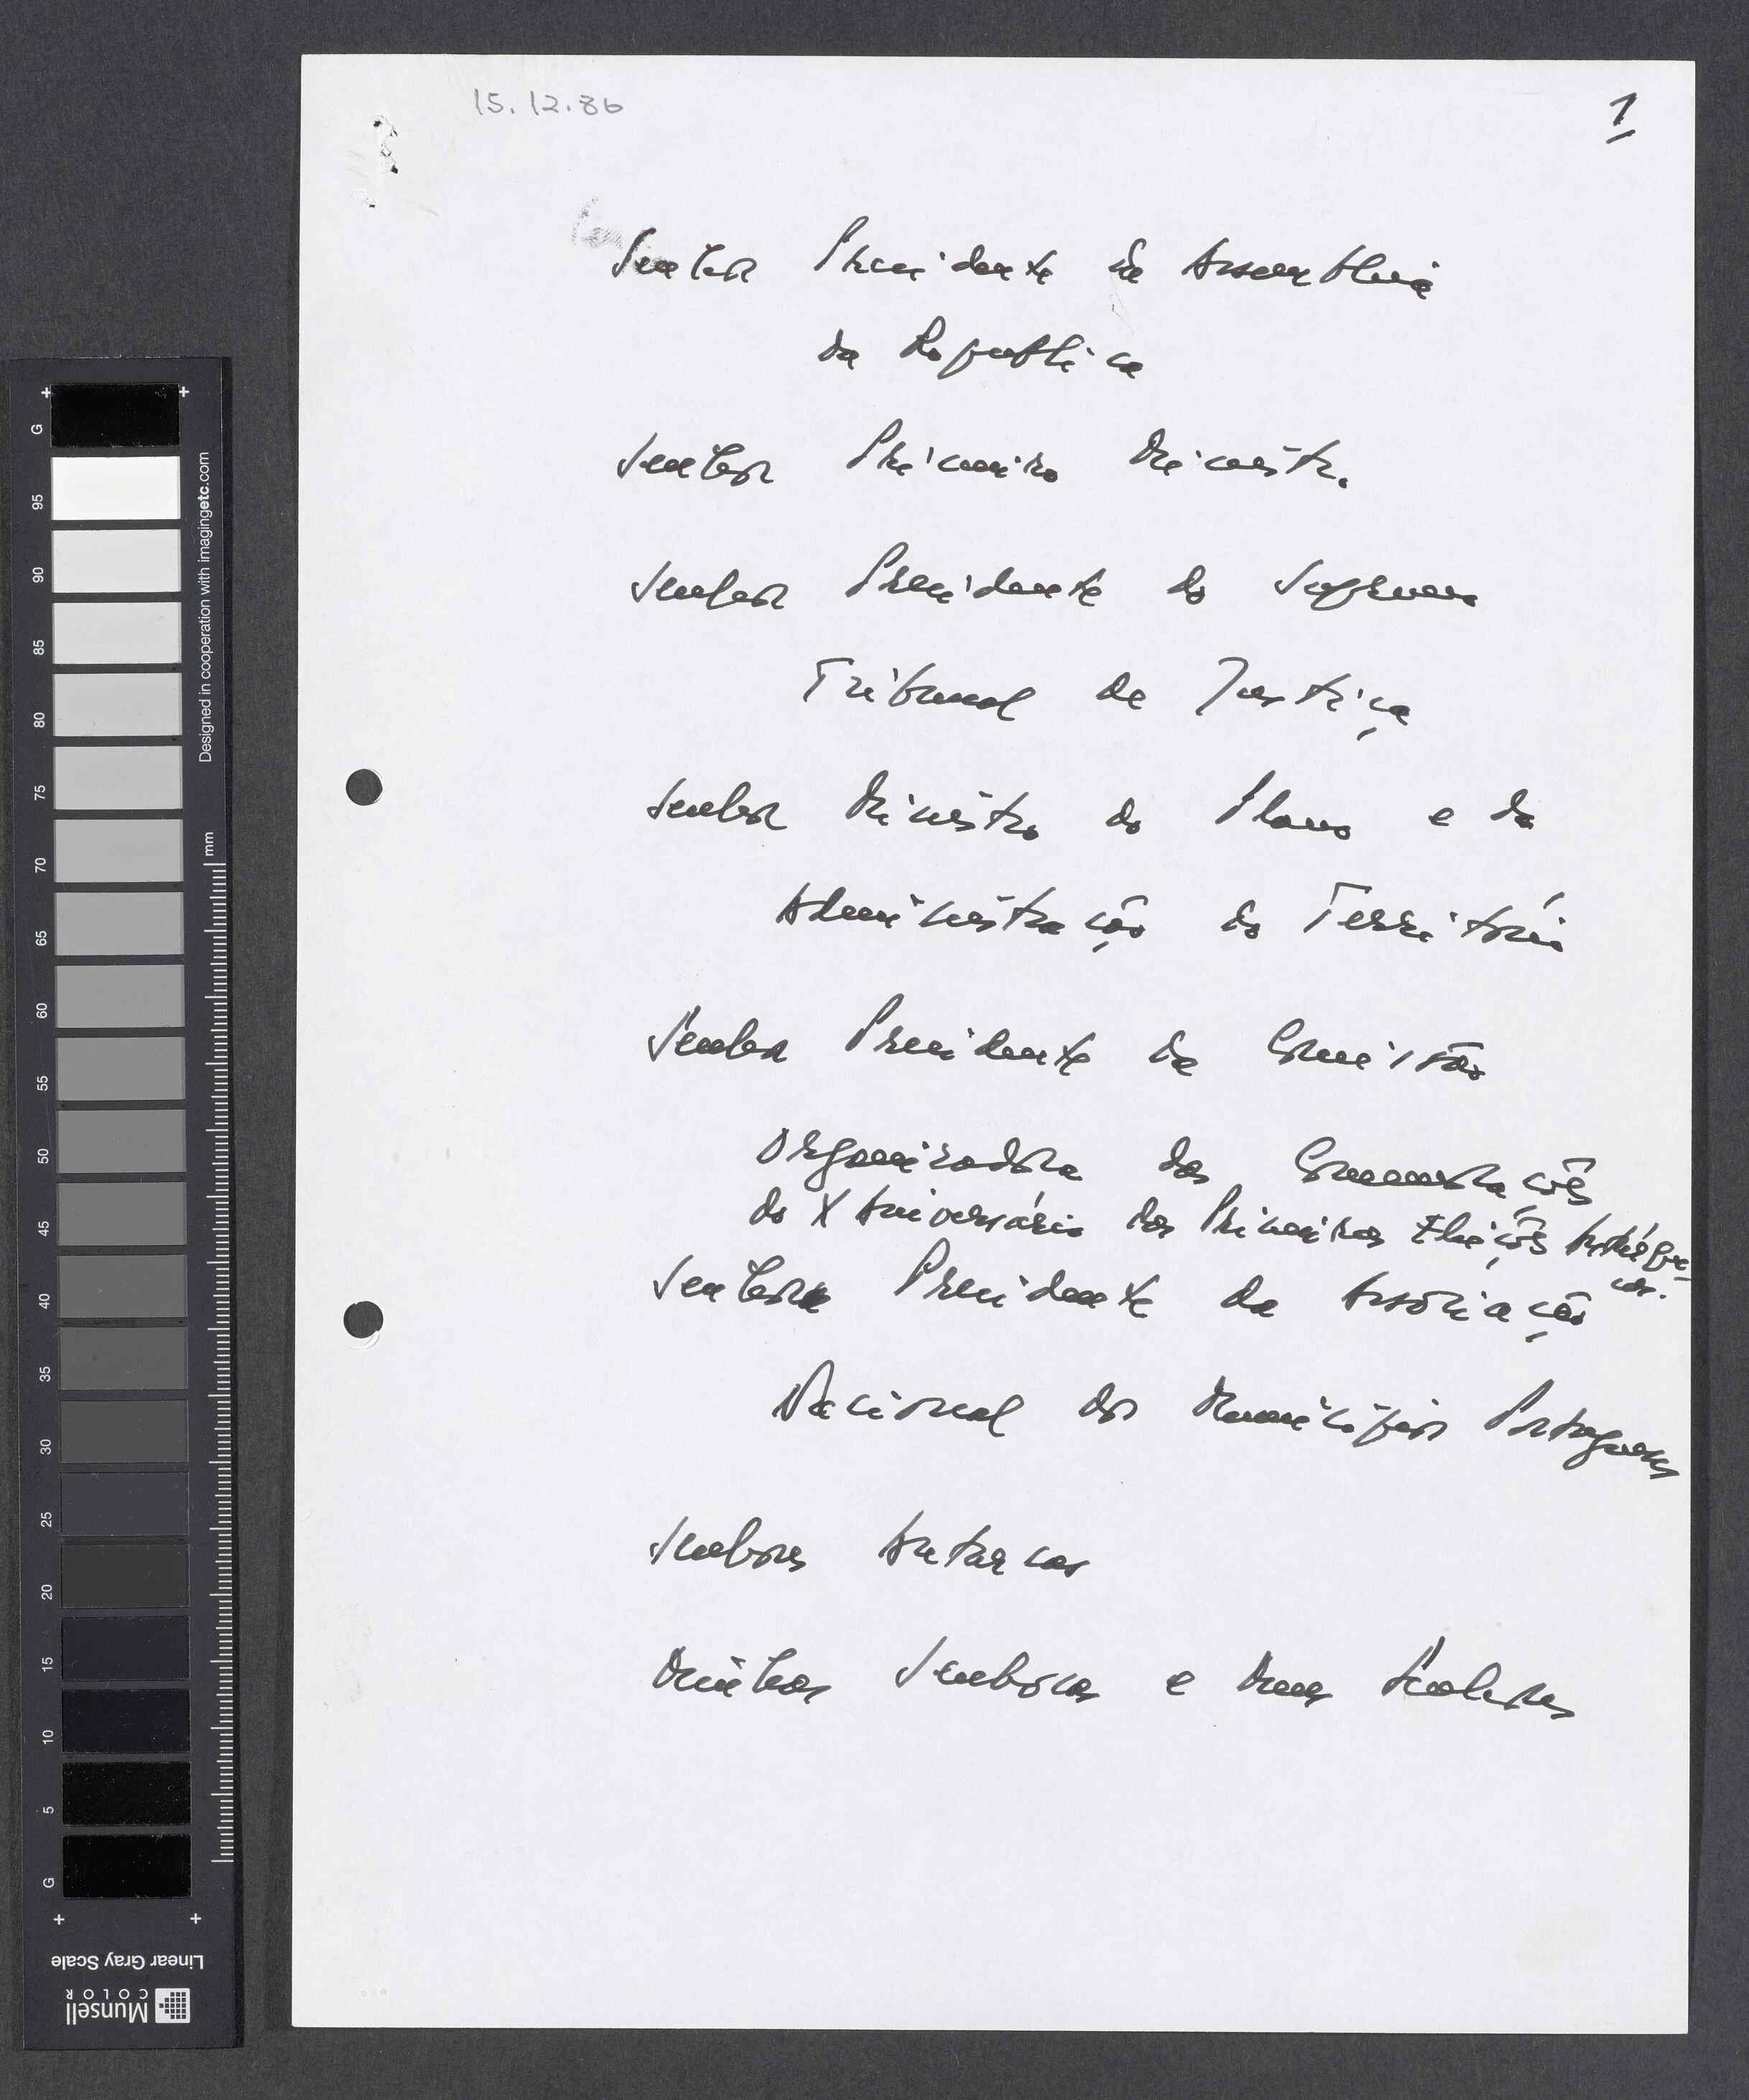 15.12.86
1
Senhor Presidente da Assembleia
da Republica
Senhor Primeiro Ministro
Senhor Presidente do Supremo
Tribunal de Justiça
Senhor Ministro do Plano e da
Administração do Território
Senhor Presidente da Comissão
Organizadora das Comemorações
do X Aniversário das Primeiras Eleições Autárqui-
cas.
Senhor Presidente da Associação
Nacional dos Municípios Portugueses
Senhores Autarcas
Minhas Senhoras e meus Senhores
G
95
90
85
80
75
70
65
60
55
50
45
40
35
30
25
20
15
10
5
G
Designed in cooperation with imagingetc.com
mm
Linear Gray Scale
Munsell
COLOR